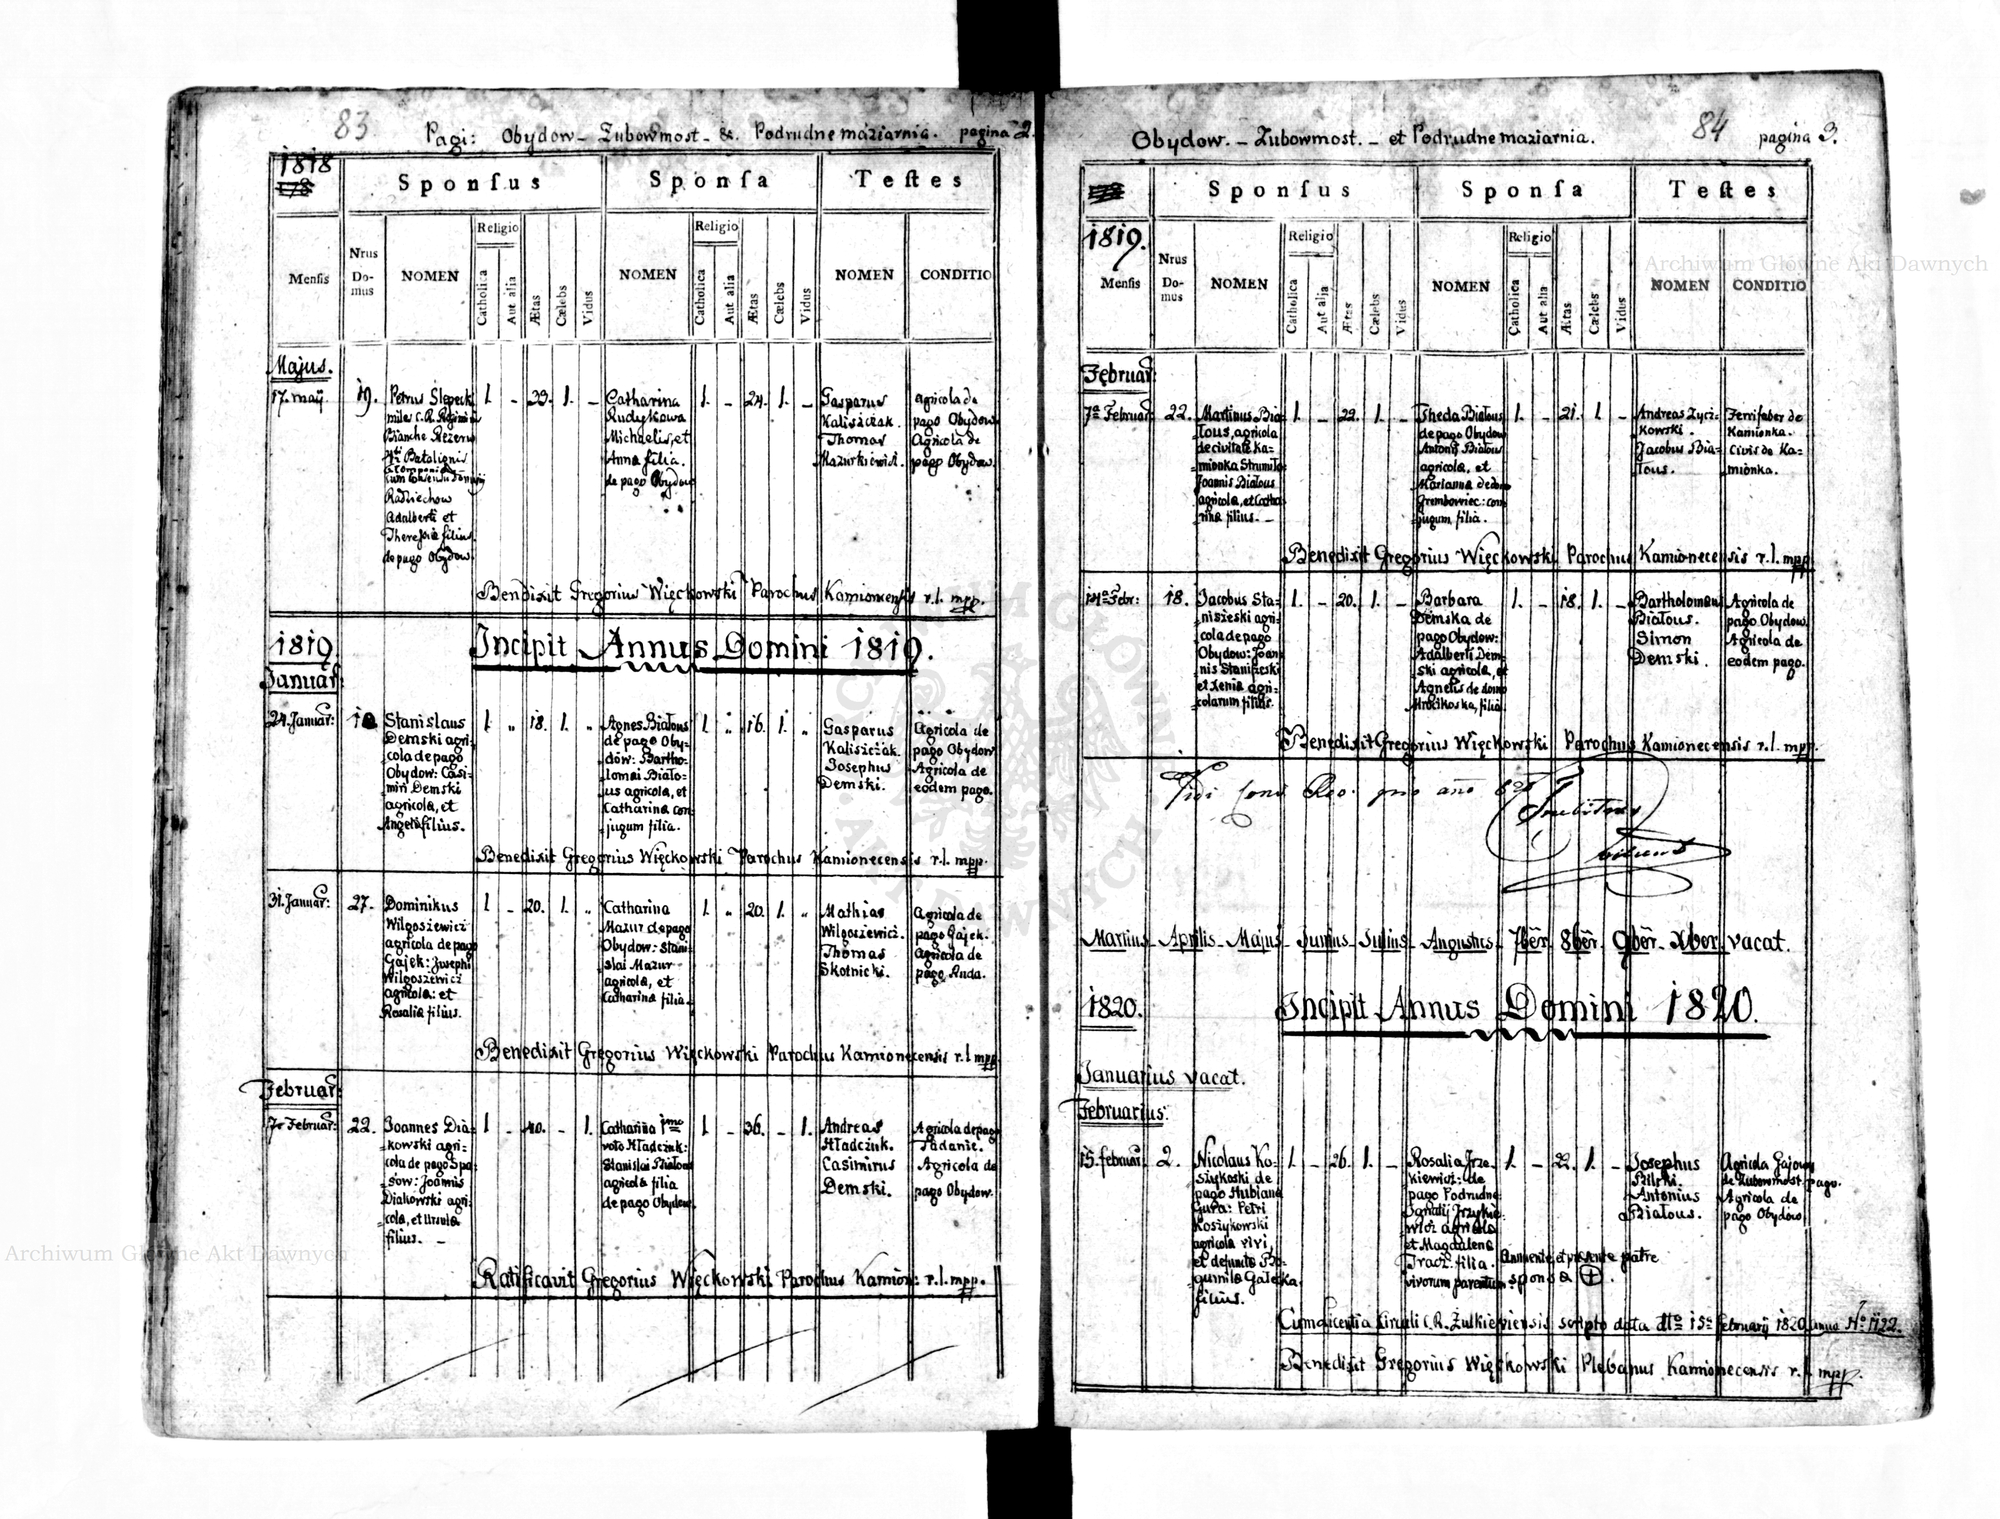 83
Pagi: Obydow - Zubowmost - &. Podrudne maziarnia. pagina 2.
1818
178
Sponſus
Sponſa
Teſtes
Menſis
Nrus Do-mus
NOMEN
Religio
Catholica
Aut alia
Ætas
Cælebs
Vidus
NOMEN
Religio
Catholica
Aut alia
Ætas
Cælebs
Vidus
NOMEN
CONDITIO
Majus.
17. maij
19.
Petrus Slepecki
miles C. R. Regiminis
Bianche
Batalionis
Radziechow
Adalberti et
Theresiæ filius
de pago Obydow.
1. - 39. 1. -
Catharina
Rudykowa
Michaelis, et
Anna filia.
de pago Obydow
1. - 24. 1. -
Gasparus
Kaliszczak.
Thomas
Mazurkiewicz.
agricola de
pago Obydow
Agricola de
pago Obydow.
Bendixit Gregorius Więckowski Parochus Kamionensis r.l. mpp.
1819. Incipit Annus Domini 1819.
Januar:
24. Januar:
Stanislaus
Demski agri-
cola de pago
Obydow: Casi-
miri Demski
agricolæ, et
Angelæ filius.
1. „ 18. 1. „
Agnes Białous
de pago Oby-
dow: Bartho-
lomæi Biało-
us agricolæ, et
Catharinæ con-
jugum filia.
1. „ 16. 1. „
Gasparus
Kaliszczak.
Josephus
Demski.
Agricola de
pago Obydow
Agricola de
eodem pago.
Benedixit Gregorius Więckowski Parochus Kamionecensis r.l. mpp.
31. Januar:
27.
Dominikus
Wilgoszewicz
agricola de pago
Gajek: Josephi
Wilgoszewicz
agricolæ: et
Rosaliæ filius.
1. - 20. 1. „
Catharina
Mazur de pago
Obydow: Stani-
slai Mazur
agricolæ, et
Catharinæ filia.
1. „ 20. 1. „
Mathias
Wilgoszewicz.
Thomas
Skotnicki.
Agricola de
pago Gajek.
agricola de
pago Ruda.
Benedixit Gregorius Więckowski Parochus Kamionecensis r.l. mpp
Februar:
7. Februar:
22.
Joannes Dia-
kowski agri-
cola de pago Spa-
sow: Joannis
Diakowski agri-
colæ, et Ursulæ
filius. -
1. - 40. - 1.
Catharina 1mo
voto Hładczuk:
Stanislai Białous
agricolæ filia
de pago Obydow.
1. - 36. - 1.
Andreas
Hładczuk.
Casimirus
Demski.
Agricola de pago
Tadanie.
Agricola de
pago Obydow.
Ratificavit Gregorius Więckowski Parochus Kamion: r.l. mpp.
Obydow. - Zubowmost. - et Podrudne maziarnia. 84 pagina 3.
178
Sponſus
Sponſa
Teſtes
1819.
Menſis
Nrus Do-mus
NOMEN
Religio
Catholica
Aut alia
Ætas
Cælebs
Vidus
NOMEN
Religio
Catholica
Aut alia
Ætas
Cælebs
Vidus
NOMEN
CONDITIO
Februar:
7a Februar
22.
Martinus Bia-
łous, agricola
de civitate Ka-
mionka Strumiło
Joannis Białous
agricolæ, et Catha-
rinæ filius. -
1. - 22. 1. -
Theda Białous
de pago Obydow
Antonij Białous
agricolæ, et
Mariannæ de domo
Grembowiec: con-
jugum filia.
1. - 21. 1. -
Andreas Zyci-
kowski.
Jacobus Bia-
łous.
Ferrifaber de
Kamionka.
Civis de Ka-
mionka.
Benedixit Gregorius Więckowski Parochus Kamionecensis r.l. mpp
18.
Jacobus Sta-
niszeski agri-
cola de pago
Obydow: Joan-
nis Staniszeski
et Xeniæ agri-
colarum filius.
1. - 20. 1. -
Barbara
Demska de
pago Obydow:
Adalberti Dem-
ski agricolæ, et
Agnetis de domo
filia
1. - 18. 1. -
Bartholomæus
Białous.
Simon
Demski.
Agricola de
pago Obydow.
Agricola de
eodem pago.
Benedixit Gregorius Więckowski Parochus Kamionecensis r.l. mpp.
Vidi
Martius - Aprilis - Majus - Junius - Julius - Augustus - 7ber 8ber 9ber - Xber vacat.
1820. Incipit Annus Domini 1820.
Januarius vacat.
Februarius.
15. februar
2.
Nicolaus Ko-
szykoski de
pago Hubiana
Gura: Petri
Koszykowski
agricola vivi,
et defunctæ Bo-
gumilæ Gałecka
filius.
1. - 26. 1. -
Rosalia Jrze-
kiewicz: de
pago Podrudne
Ignatij Jrzykie-
wicz agricolæ
et Magdalenæ
Tracz. filia.
vivorum parentum
1. - 22. 1. -
Annuente et præsente patre
sponsæ ⊕.
Josephus
Bilski.
Antonius
Białous.
Agricola Gajowy
de Zubowmost pago.
Agricola de
pago Obydow
Cum licentia Circuli C. R. Żułkiewiensis scripto data dto 15a februarij 1820 anno No 1122.
Benedixit Gregorius Więckowski Plebanus Kamionecensis r.l. mpp.
Archiwum Główne Akt Dawnych
Archiwum Główne Akt Dawnych